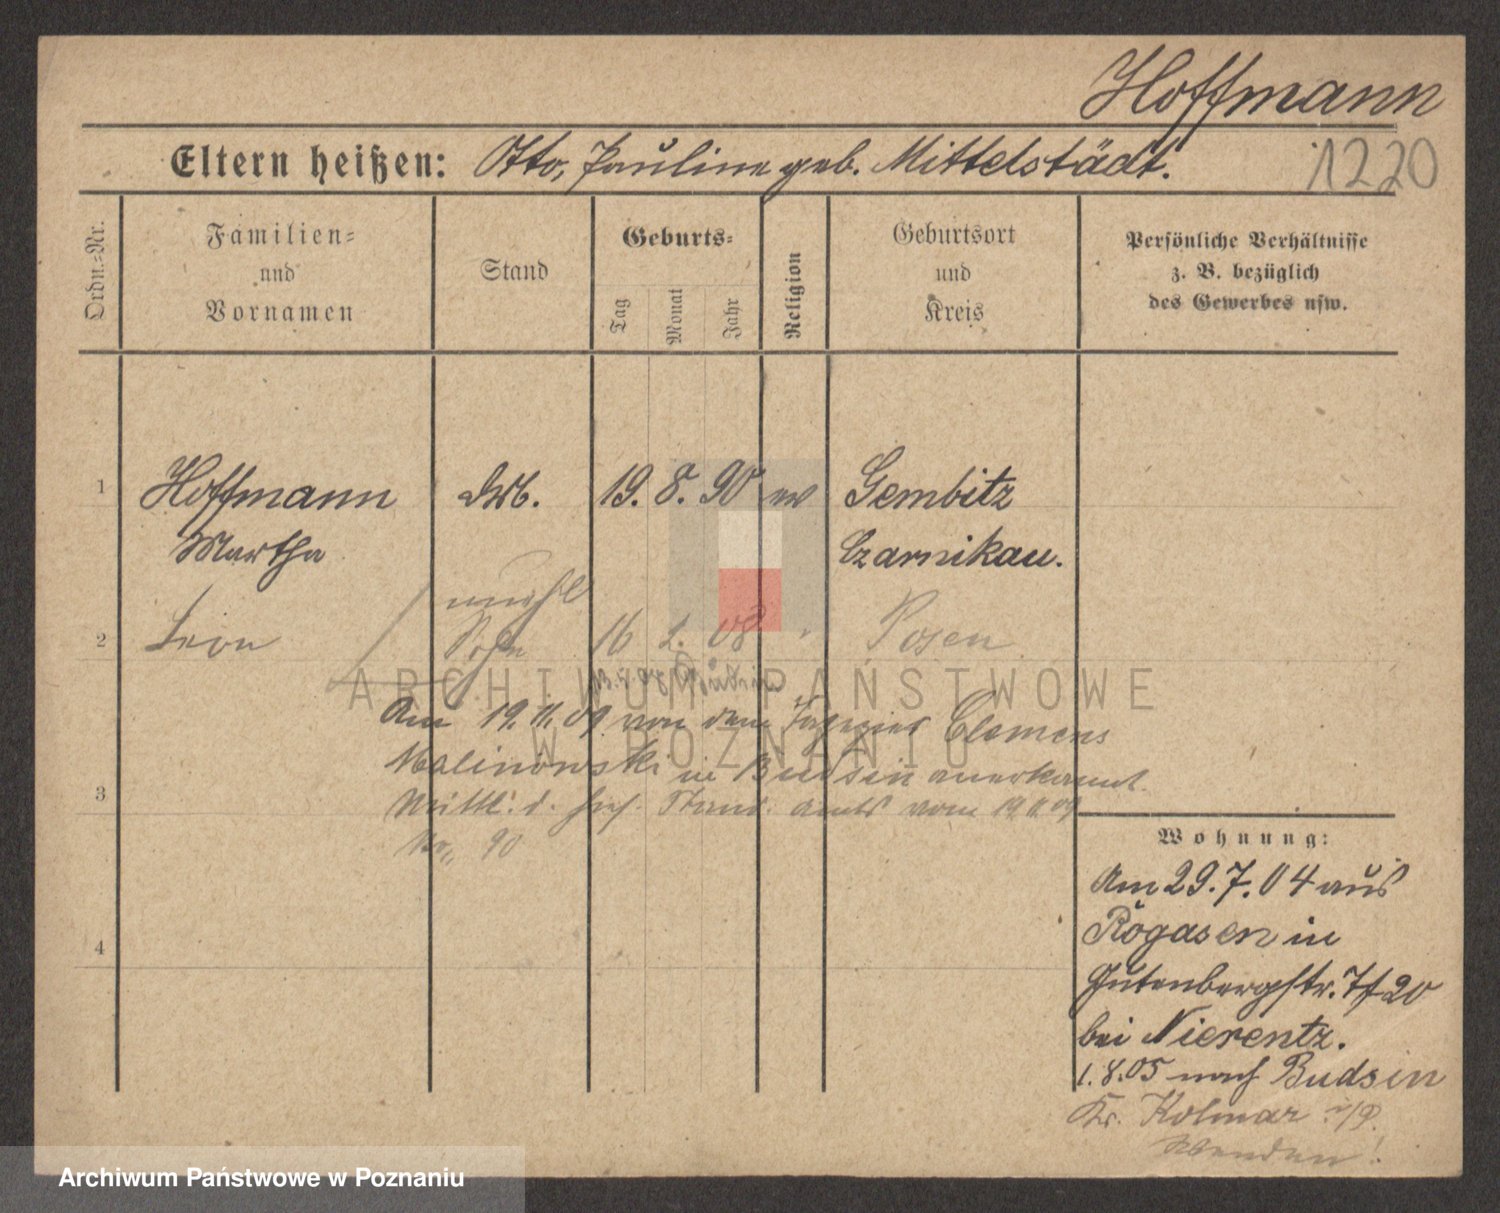 Hoffmann
Eltern heißen: Otto, Pauline geb. Mittelstädt.
1220
Ordn.-Nr.
Familien-
und
Vornamen
Stand
Geburts-
Tag
Monat
Jahr
Religion
Geburtsort
und
Kreis
Persönliche Verhältnisse
z. B. bezüglich
des Gewerbes usw.
1 Hoffmann 19. 8. 90 ev Gembitz
Martha Czarnikau.
unehl
2 Leon Sohn 16 08 " Posen
ARCHIWUM PAŃSTWOWE
W POZNANIU
Am 19.11.09. von dem Clemens
Malinowski in Budsin anerkannt.
3 Mittl. d. Stand. Amts vom 19.11.09
No. 90
4
Wohnung:
Am 29.7.04 aus
Rogasen in
Gutenbergstr. 7 20
bei Nierentz.
1.8.05 nach Budsin
Kr. Kolmar i/P.
Wenden!
Archiwum Państwowe w Poznaniu